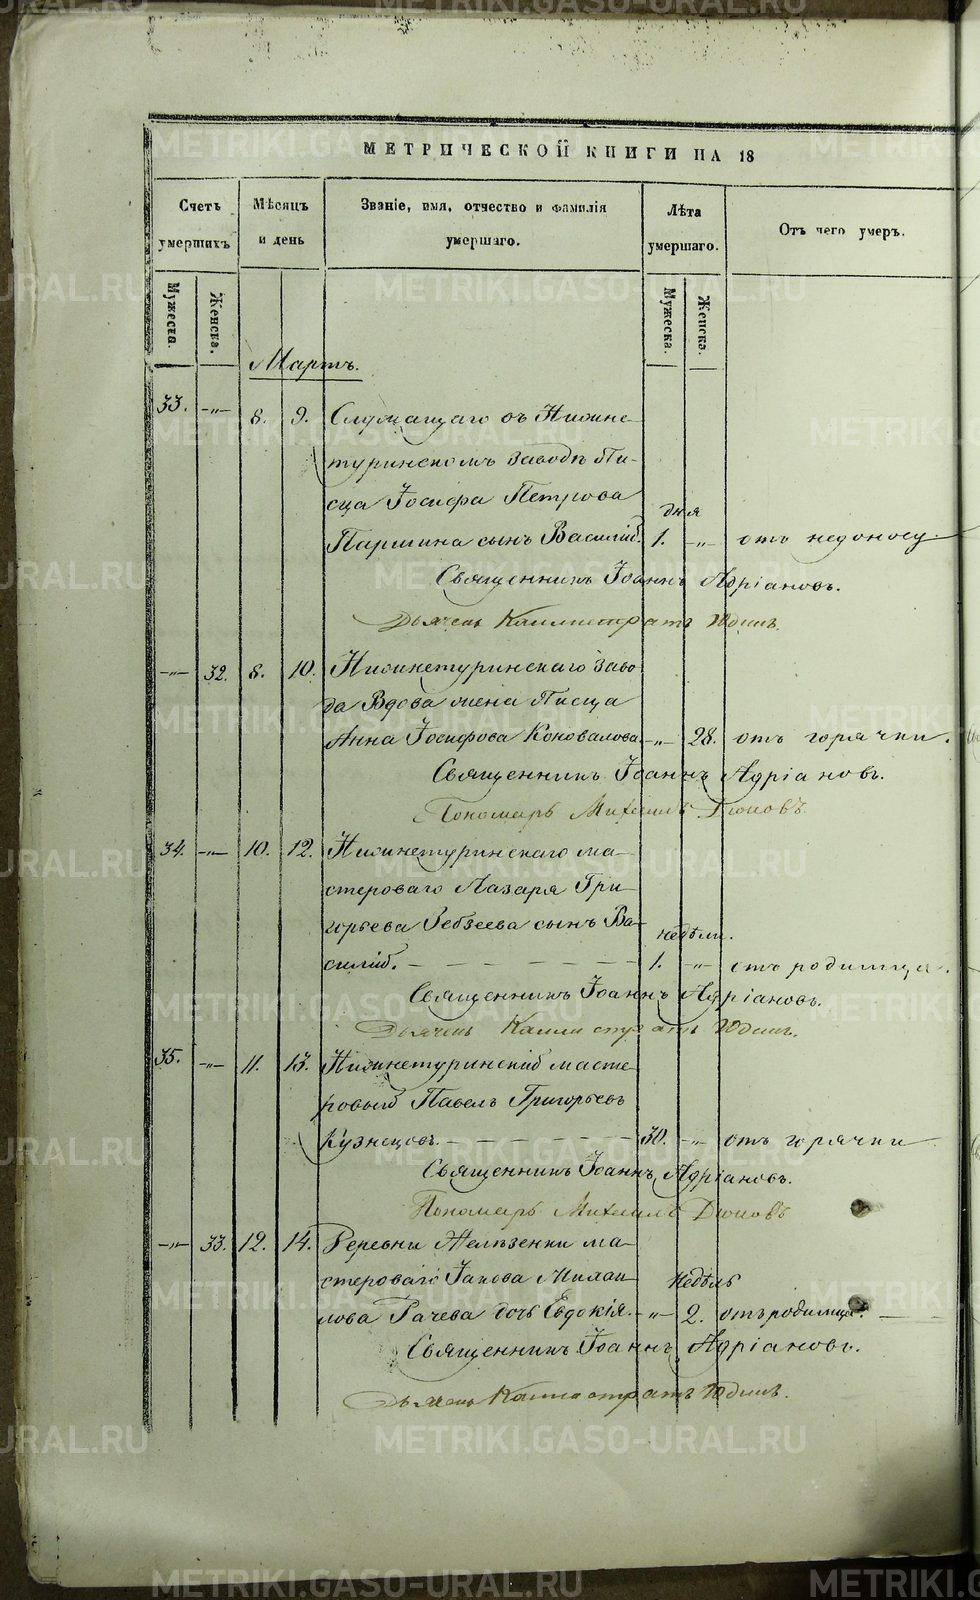 МЕТРИЧЕСКОЙ КНИГИ НА 18
Счетъ умершихъ
Мѣсяцъ и день
Званіе, имя, отчество и фамилія умершаго.
Лѣта умершаго.
Отъ чего умеръ.
Мужеска. Женска.
Мужеска. Женска.
Мартъ.
33. -„- 8. 9. Служащаго въ Нижне-
туринскомъ заводѣ Пи-
сца Іосифа Петрова
дня
Паршина сынъ Василій. 1. -„- отъ недоносу.
Священникъ Іоаннъ Адріановъ.
Дьячекъ Каллистратъ Юдинъ.
-„- 32. 8. 10. Нижнетуринскаго заво-
да Вдова жена Писца
Анна Іосифова Коновалова. -„- 28. отъ горячки.
Священникъ Іоаннъ Адріановъ.
Пономарь Михаилъ Дюковъ.
34. -„- 10. 12. Нижнетуринскаго ма-
стероваго Лазаря Гри-
горьева Зебзеева сынъ Ва-
недѣли.
силій. 1. -„- отъ родимца.
Священникъ Іоаннъ Адріановъ.
Дьячекъ Каллистратъ Юдинъ.
35. -„- 11. 13. Нижнетуринскій масте-
ровый Павелъ Григорьевъ
Кузнецовъ. 30. -„- отъ горячки
Священникъ Іоаннъ Адріановъ.
Пономарь Михаилъ Дюковъ
-„- 33. 12. 14. Деревни Желѣзенки ма-
стероваго Іакова Михаи-
недѣль
лова Рачева дочь Евдокія. -„- 2. отъ родимца.
Священникъ Іоаннъ Адріановъ.
Дьячекъ Каллистратъ Юдинъ.
METRIKI.GASO-URAL.RU